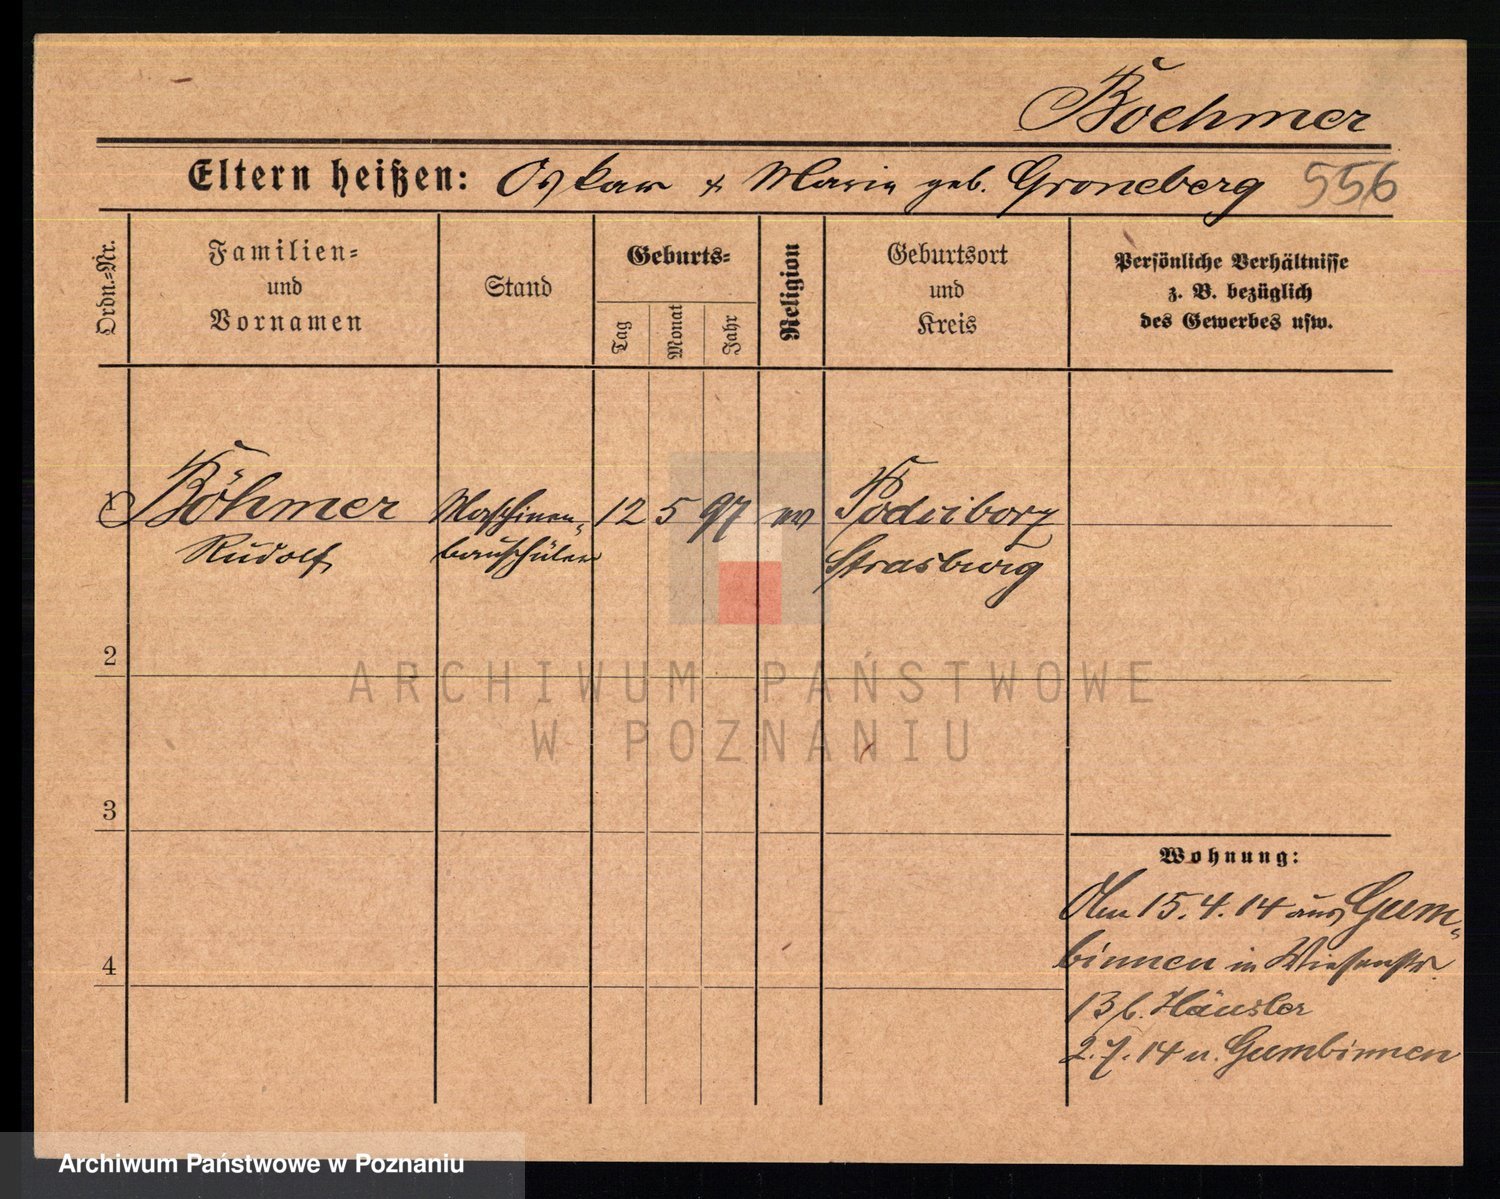 Boehmer
Eltern heißen: Oskar & Marie geb. Groneberg 556
Ordn.-Nr.
Familien=
und
Vornamen
Stand
Geburts=
Tag
Monat
Jahr
Religion
Geburtsort
und
Kreis
Persönliche Verhältnisse
z. B. bezüglich
des Gewerbes usw.
1 Böhmer Maschinen- 12 5 97 ev
Rudolf bauschüler Strasburg
2
3
4
Wohnung:
Am 15.4.14 aus Gum-
binnen in Wiesenstr.
13 b. Häusler
2.7.14 n. Gumbinnen
ARCHIWUM PAŃSTWOWE
W POZNANIU
Archiwum Państwowe w Poznaniu